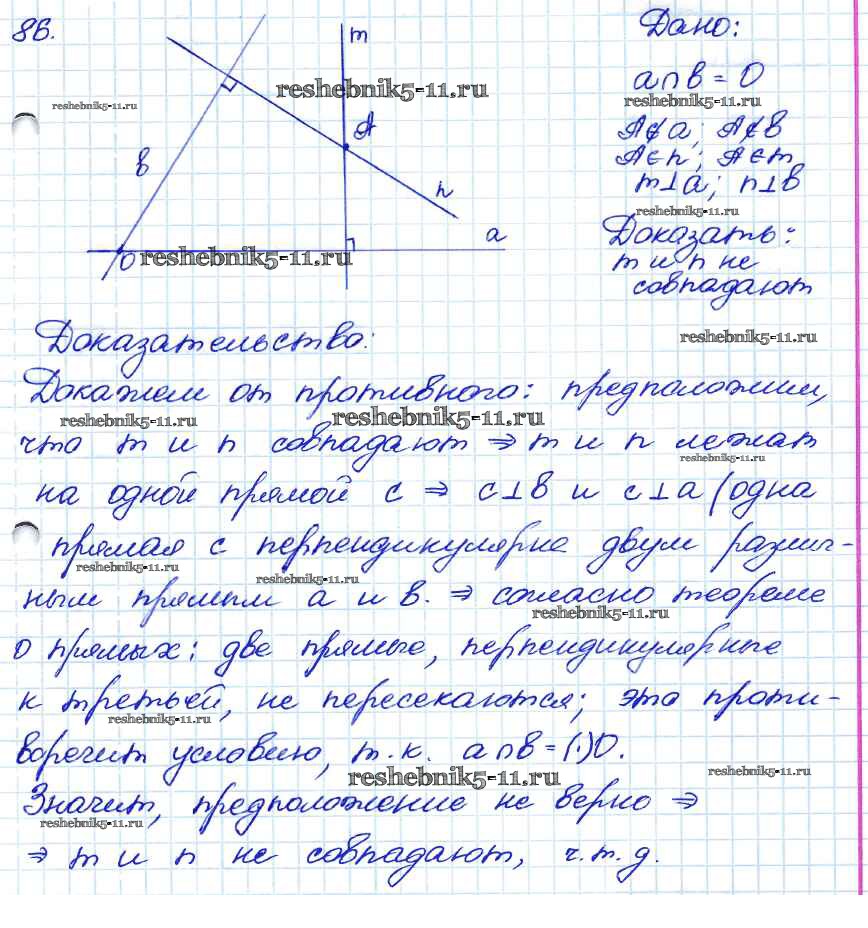 86.
m
Дано:
reshebnik5-11.ru
a∩в = O
reshebnik5-11.ru
reshebnik5-11.ru
A∉a; A∉в
A
A∈n; A∈m
в
m⊥a; n⊥в
n
reshebnik5-11.ru
a
Доказать:
O reshebnik5-11.ru
m и n не
совпадают
Доказательство:
reshebnik5-11.ru
Докажем от противного: предположим,
reshebnik5-11.ru
reshebnik5-11.ru
что m и n совпадают ⇒ m и n лежат
reshebnik5-11.ru
на одной прямой c ⇒ c⊥в и c⊥a (одна
прямая c перпендикулярна двум различ-
reshebnik5-11.ru
reshebnik5-11.ru
ным прямым a и в. ⇒ согласно теореме
reshebnik5-11.ru
о прямых: две прямые, перпендикулярные
к третьей, не пересекаются; это проти-
reshebnik5-11.ru
воречит условию, т.к. a∩в = (·)O.
reshebnik5-11.ru
reshebnik5-11.ru
Значит, предположение не верно ⇒
reshebnik5-11.ru
⇒ m и n не совпадают, ч.т.д.